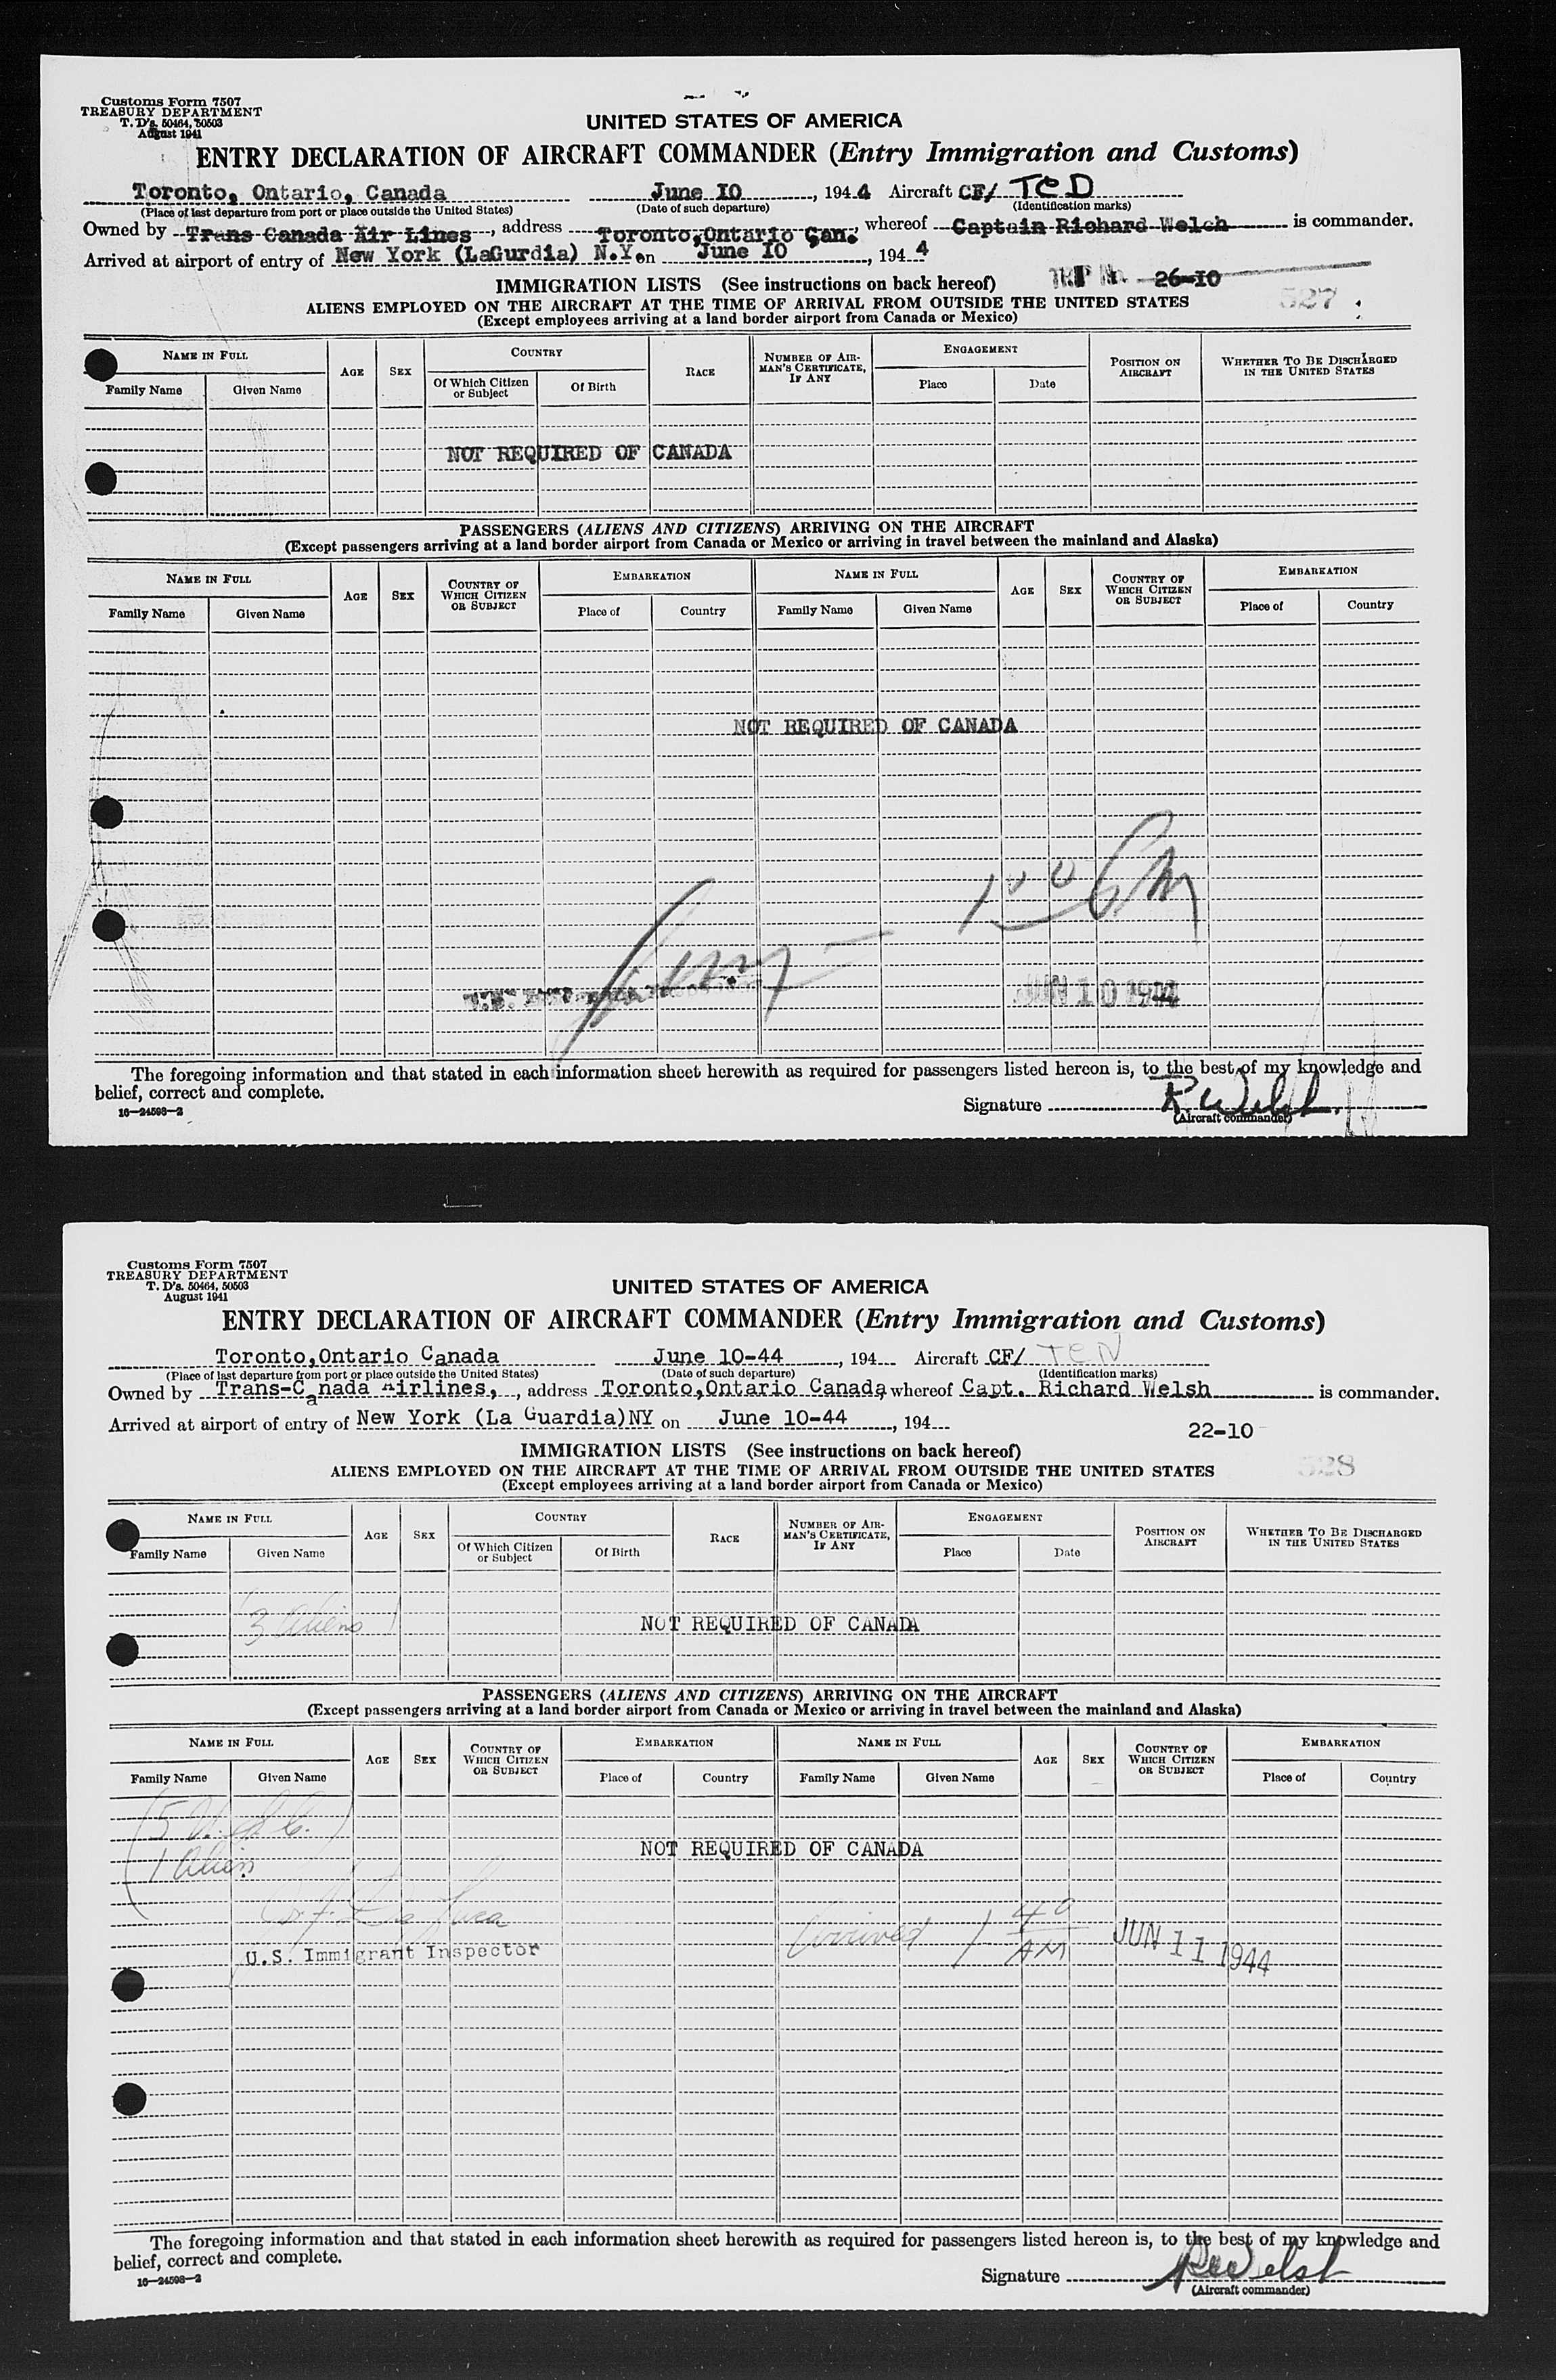 Customs Form 7507
TREASURY DEPARTMENT
T. D's. 50464, 50503
August 1941
UNITED STATES OF AMERICA
ENTRY DECLARATION OF AIRCRAFT COMMANDER (Entry Immigration and Customs)
Toronto, Ontario, Canada June 10, 1944 Aircraft CF/ TCD
(Place of last departure from port or place outside the United States) (Date of such departure) (Identification marks)
Owned by Trans Canada Air Lines, address Toronto,Ontario Can. whereof Captain Richard Welch is commander.
Arrived at airport of entry of New York (LaGurdia) N.Y. on June 10, 1944
IMMIGRATION LISTS (See instructions on back hereof) 26-10
ALIENS EMPLOYED ON THE AIRCRAFT AT THE TIME OF ARRIVAL FROM OUTSIDE THE UNITED STATES 527
(Except employees arriving at a land border airport from Canada or Mexico)
NAME IN FULL AGE SEX COUNTRY RACE NUMBER OF AIRMAN'S CERTIFICATE, IF ANY ENGAGEMENT POSITION ON AIRCRAFT WHETHER TO BE DISCHARGED IN THE UNITED STATES
Family Name Given Name Of Which Citizen or Subject Of Birth Place Date
NOT REQUIRED OF CANADA
PASSENGERS (ALIENS AND CITIZENS) ARRIVING ON THE AIRCRAFT
(Except passengers arriving at a land border airport from Canada or Mexico or arriving in travel between the mainland and Alaska)
NAME IN FULL AGE SEX COUNTRY OF WHICH CITIZEN OR SUBJECT EMBARKATION NAME IN FULL AGE SEX COUNTRY OF WHICH CITIZEN OR SUBJECT EMBARKATION
Family Name Given Name Place of Country Family Name Given Name Place of Country
NOT REQUIRED OF CANADA
1 00 PM
JUN 10 1944
The foregoing information and that stated in each information sheet herewith as required for passengers listed hereon is, to the best of my knowledge and
belief, correct and complete.
Signature R Welsh
16—24598—2 (Aircraft commander)
Customs Form 7507
TREASURY DEPARTMENT
T. D's. 50464, 50503
August 1941
UNITED STATES OF AMERICA
ENTRY DECLARATION OF AIRCRAFT COMMANDER (Entry Immigration and Customs)
Toronto,Ontario Canada June 10-44, 194 Aircraft CF/ TCN
(Place of last departure from port or place outside the United States) (Date of such departure) (Identification marks)
Owned by Trans-Canada Airlines, address Toronto,Ontario Canada, whereof Capt. Richard Welsh is commander.
Arrived at airport of entry of New York (La Guardia)NY on June 10-44, 194
22-10
IMMIGRATION LISTS (See instructions on back hereof)
ALIENS EMPLOYED ON THE AIRCRAFT AT THE TIME OF ARRIVAL FROM OUTSIDE THE UNITED STATES 528
(Except employees arriving at a land border airport from Canada or Mexico)
NAME IN FULL AGE SEX COUNTRY RACE NUMBER OF AIRMAN'S CERTIFICATE, IF ANY ENGAGEMENT POSITION ON AIRCRAFT WHETHER TO BE DISCHARGED IN THE UNITED STATES
Family Name Given Name Of Which Citizen or Subject Of Birth Place Date
(3 Aliens) NOT REQUIRED OF CANADA
PASSENGERS (ALIENS AND CITIZENS) ARRIVING ON THE AIRCRAFT
(Except passengers arriving at a land border airport from Canada or Mexico or arriving in travel between the mainland and Alaska)
NAME IN FULL AGE SEX COUNTRY OF WHICH CITIZEN OR SUBJECT EMBARKATION NAME IN FULL AGE SEX COUNTRY OF WHICH CITIZEN OR SUBJECT EMBARKATION
Family Name Given Name Place of Country Family Name Given Name Place of Country
NOT REQUIRED OF CANADA
1 Alien
Arrived 1 40 AM JUN 11 1944
U.S. Immigrant Inspector
The foregoing information and that stated in each information sheet herewith as required for passengers listed hereon is, to the best of my knowledge and
belief, correct and complete.
Signature R Welsh
16—24598—2 (Aircraft commander)